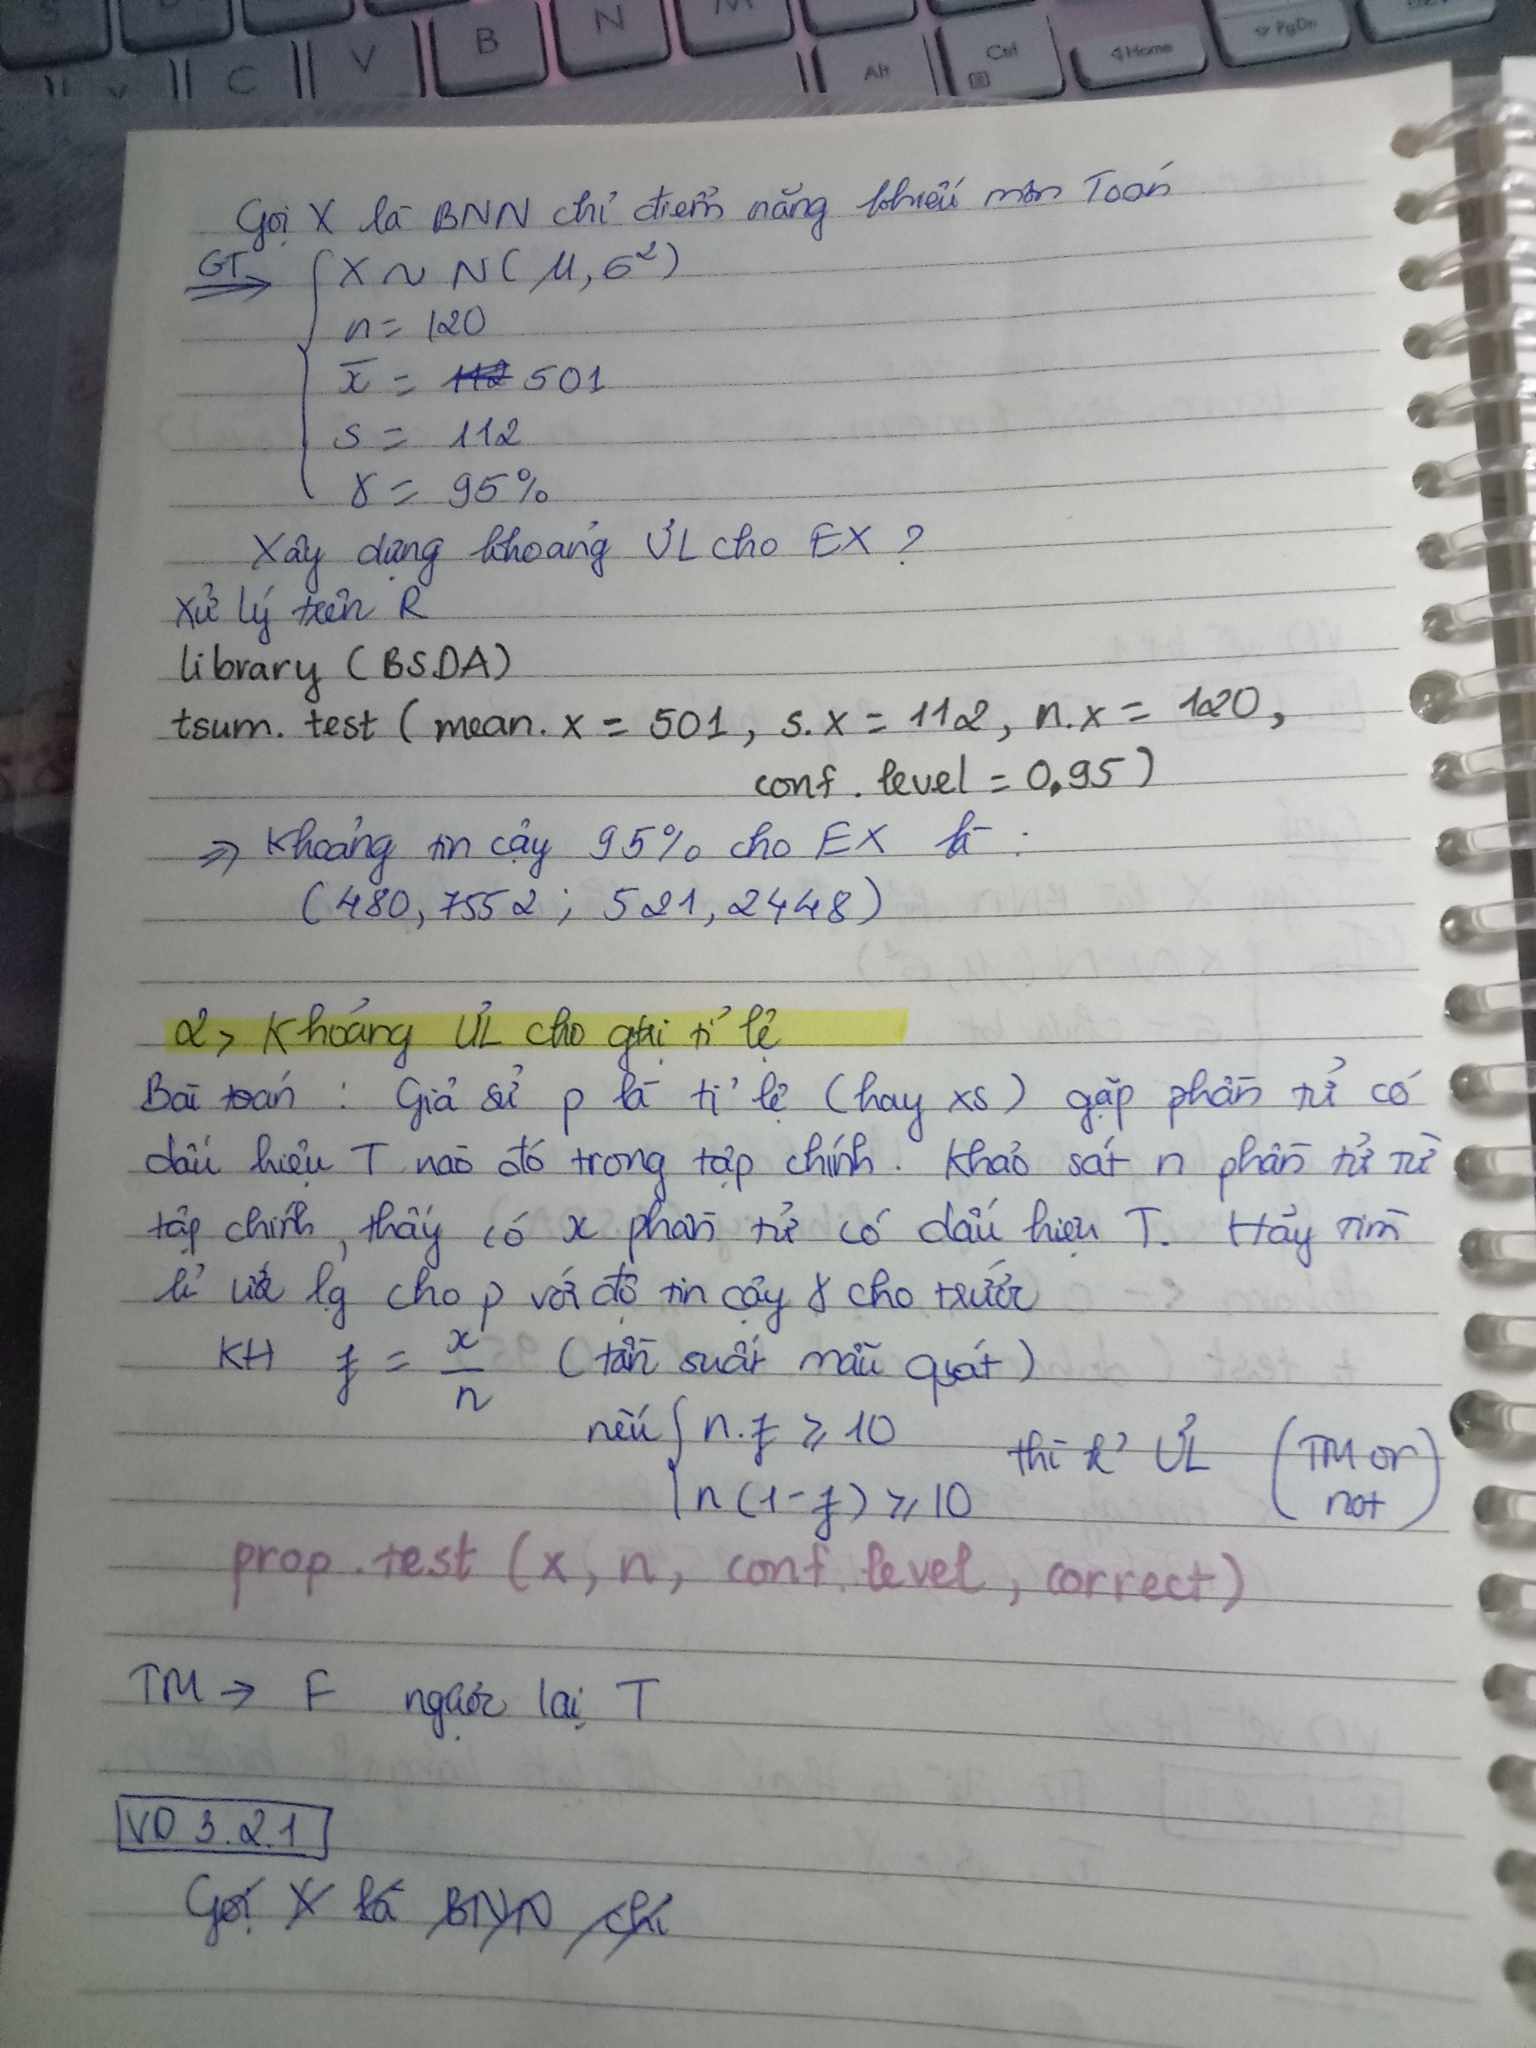 C
V
B
N
M
Alt
Ctrl
Home
PgDn
Gọi X là BNN chỉ điểm năng khiếu môn Toán
GT => X ~ N(μ, σ²)
n = 120
x̄ = 112 501
s = 112
γ = 95%
Xây dựng khoảng ƯL cho EX ?
Xử lý trên R
library (BSDA)
tsum. test ( mean. x = 501, s.x = 112, n.x = 120,
conf. level = 0,95)
=> Khoảng tin cậy 95% cho EX là :
(480,7552 ; 521,2448)
2, Khoảng ƯL cho giá trị tỉ lệ
Bài toán : Giả sử p là tỉ lệ (hay xs) gặp phần tử có
dấu hiệu T nào đó trong tập chính. Khảo sát n phần tử từ
tập chính, thấy có x phần tử có dấu hiệu T. Hãy tìm
ước lg cho p với độ tin cậy γ cho trước
KH f = x/n (tần suất mẫu quát)
nếu { n.f ≥ 10
n(1-f) ≥ 10 thì k' ƯL (TM or not)
prop. test (x, n, conf. level, correct)
TM → F ngược lại T
VD 3.2.1
Gọi X là BNN chỉ